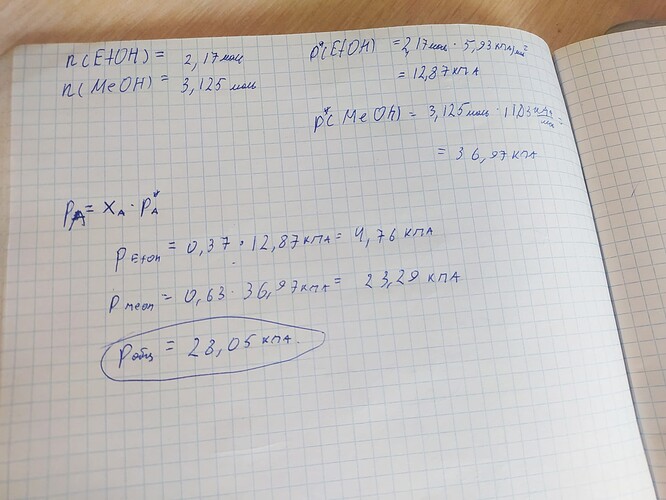 n(EtOH) = 2,17 моль
n(MeOH) = 3,125 моль
p*(EtOH) = 2,17 моль · 5,93 кПа/
= 12,87 кПа
p*(MeOH) = 3,125 моль ·
= 36,97 кПа
PA = XA · PA*
P EtOH = 0,37 · 12,87 кПа = 4,76 кПа
P MeOH = 0,63 · 36,97 кПа = 23,29 кПа
Pобщ = 28,05 кПа.